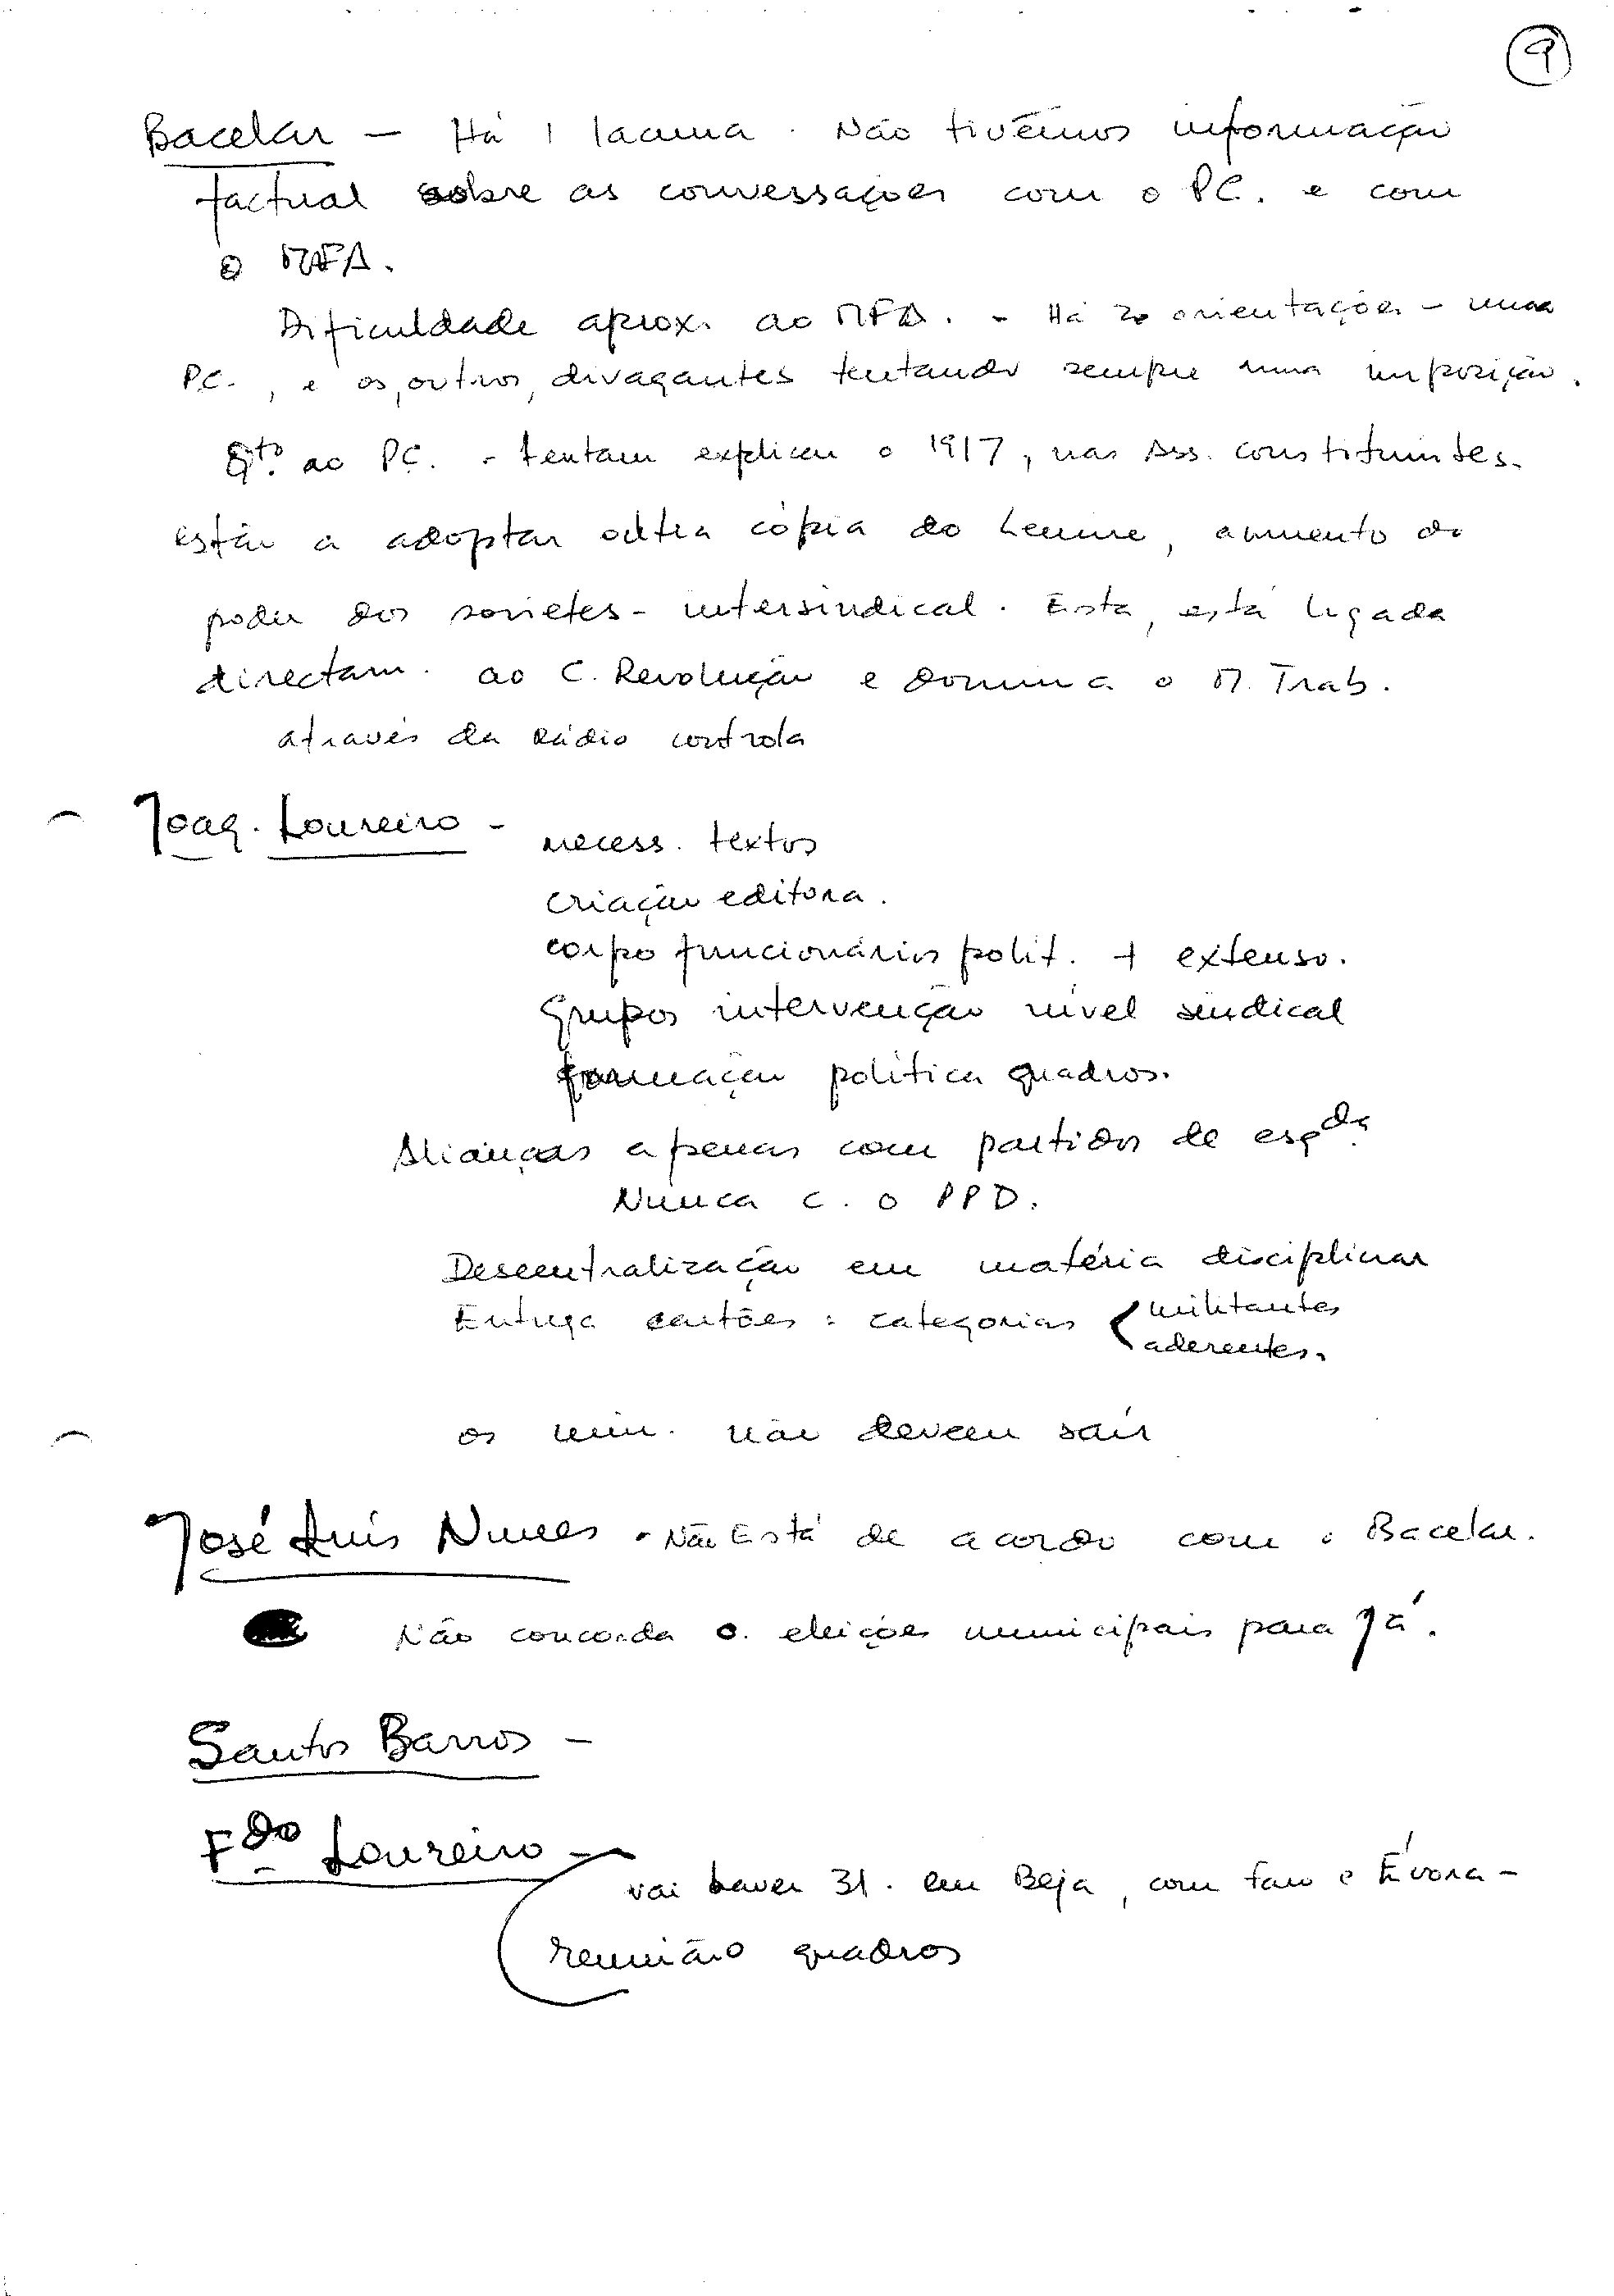 9
Bacelar - Há 1 lacuna. Não tivémos informação
factual sobre as conversações com o PC. e com
o MFA.
Dificuldade aprox. ao MFA. - Há orientações - uma
PC., e os, outros, divagantes tentando sempre uma imposição.
Qto. ao PC. - tentam explicar o 1917, nas Ass. constituintes.
estão a adoptar outra cópia do Lenine, aumento do
poder dos sovietes - intersindical. Esta, está ligada
directam. ao C. Revolução e domina o M. Trab.
através da Rádio controla
Joaq. Loureiro - necess. textos
criação editora.
corpo funcionários polit. + extenso.
Grupos intervenção nível sindical
formação política quadros.
Alianças apenas com partidos de esqda.
Nunca c. o PPD.
Descentralização em matéria disciplinar
Entrega cartões: categorias { militantes
aderentes.
os min. não devem sair
José Luís Nunes - Não Está de acordo com o Bacelar.
Não concorda c. eleições municipais para já.
Santos Barros -
Fdo Loureiro -
vai haver 31. em Beja, com Faro e Évora -
reunião quadros